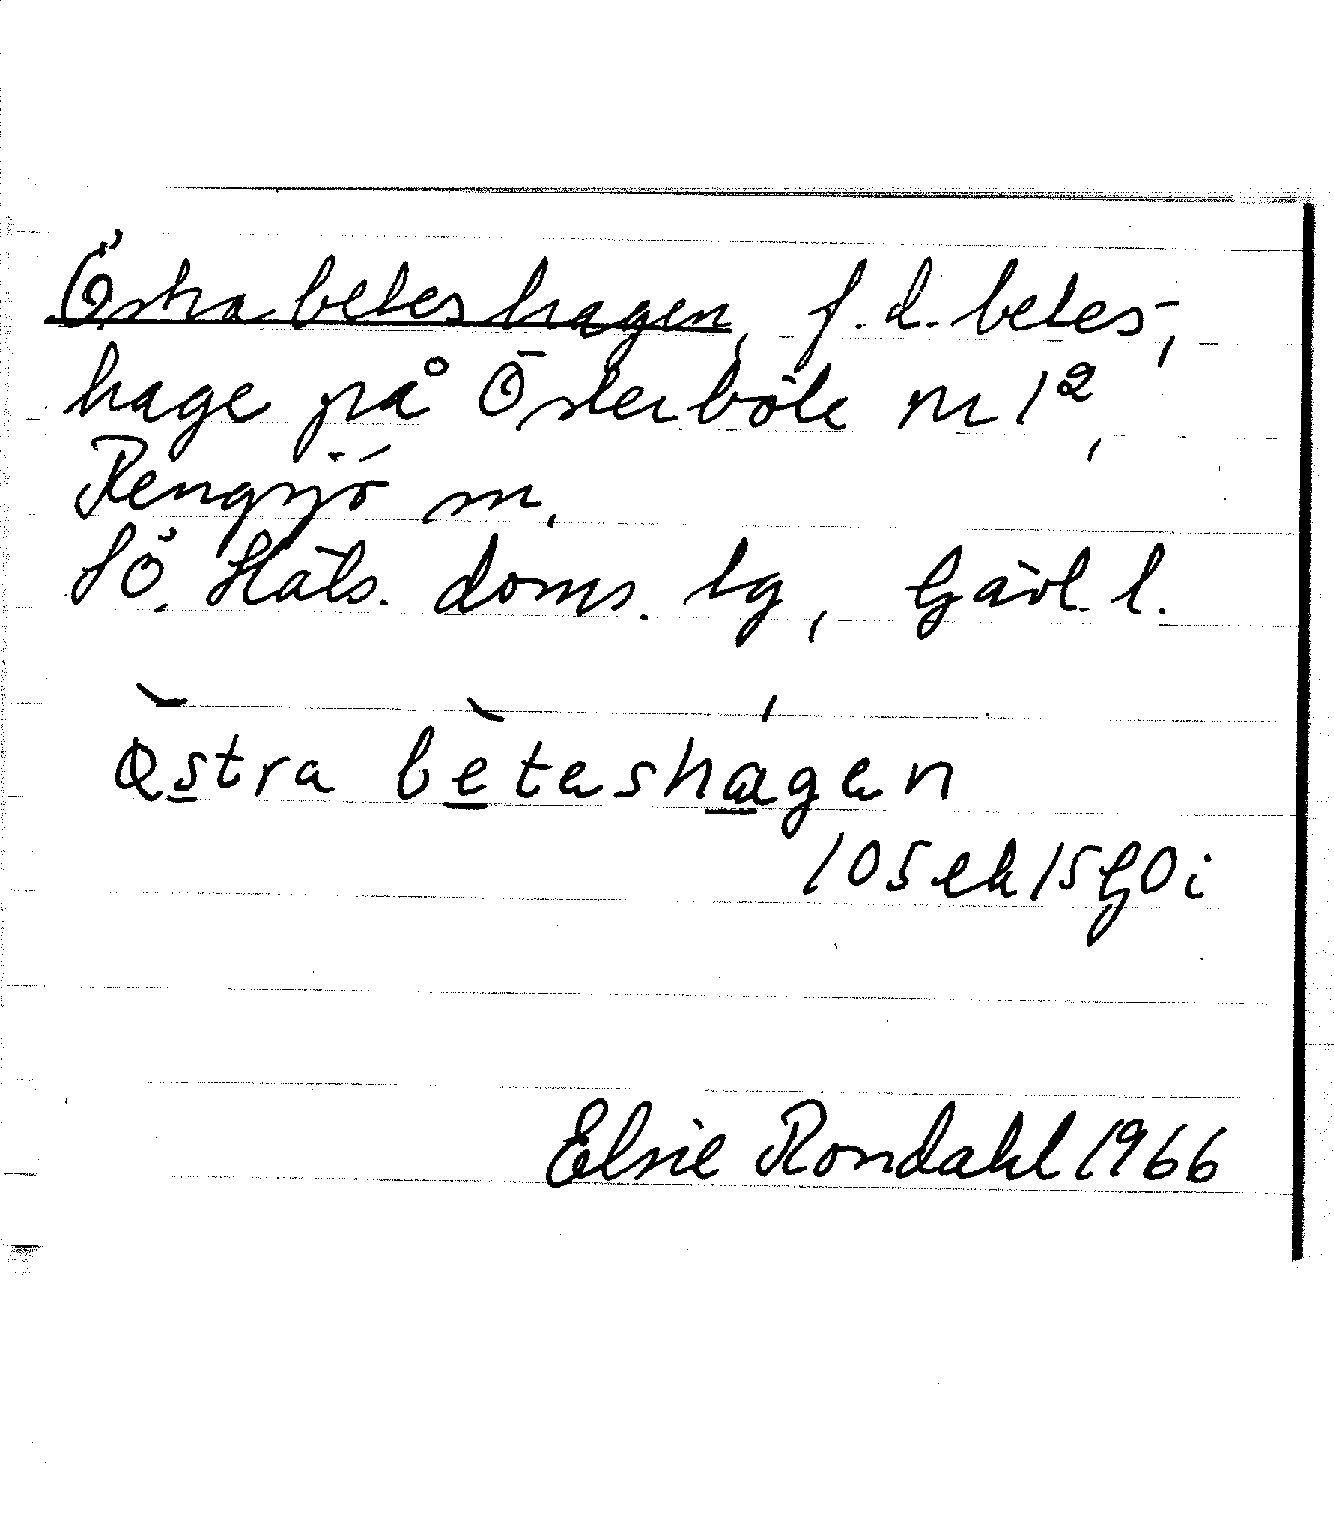 Östra beteshagen, f.d. betes-,
hage på Österböle nr 1²,
Rengsjö sn.
SÖ. Häls. doms. tg, Gävl. l.
Östra beteshagen
10Sek15G0i
Elsie Rondahl 1966